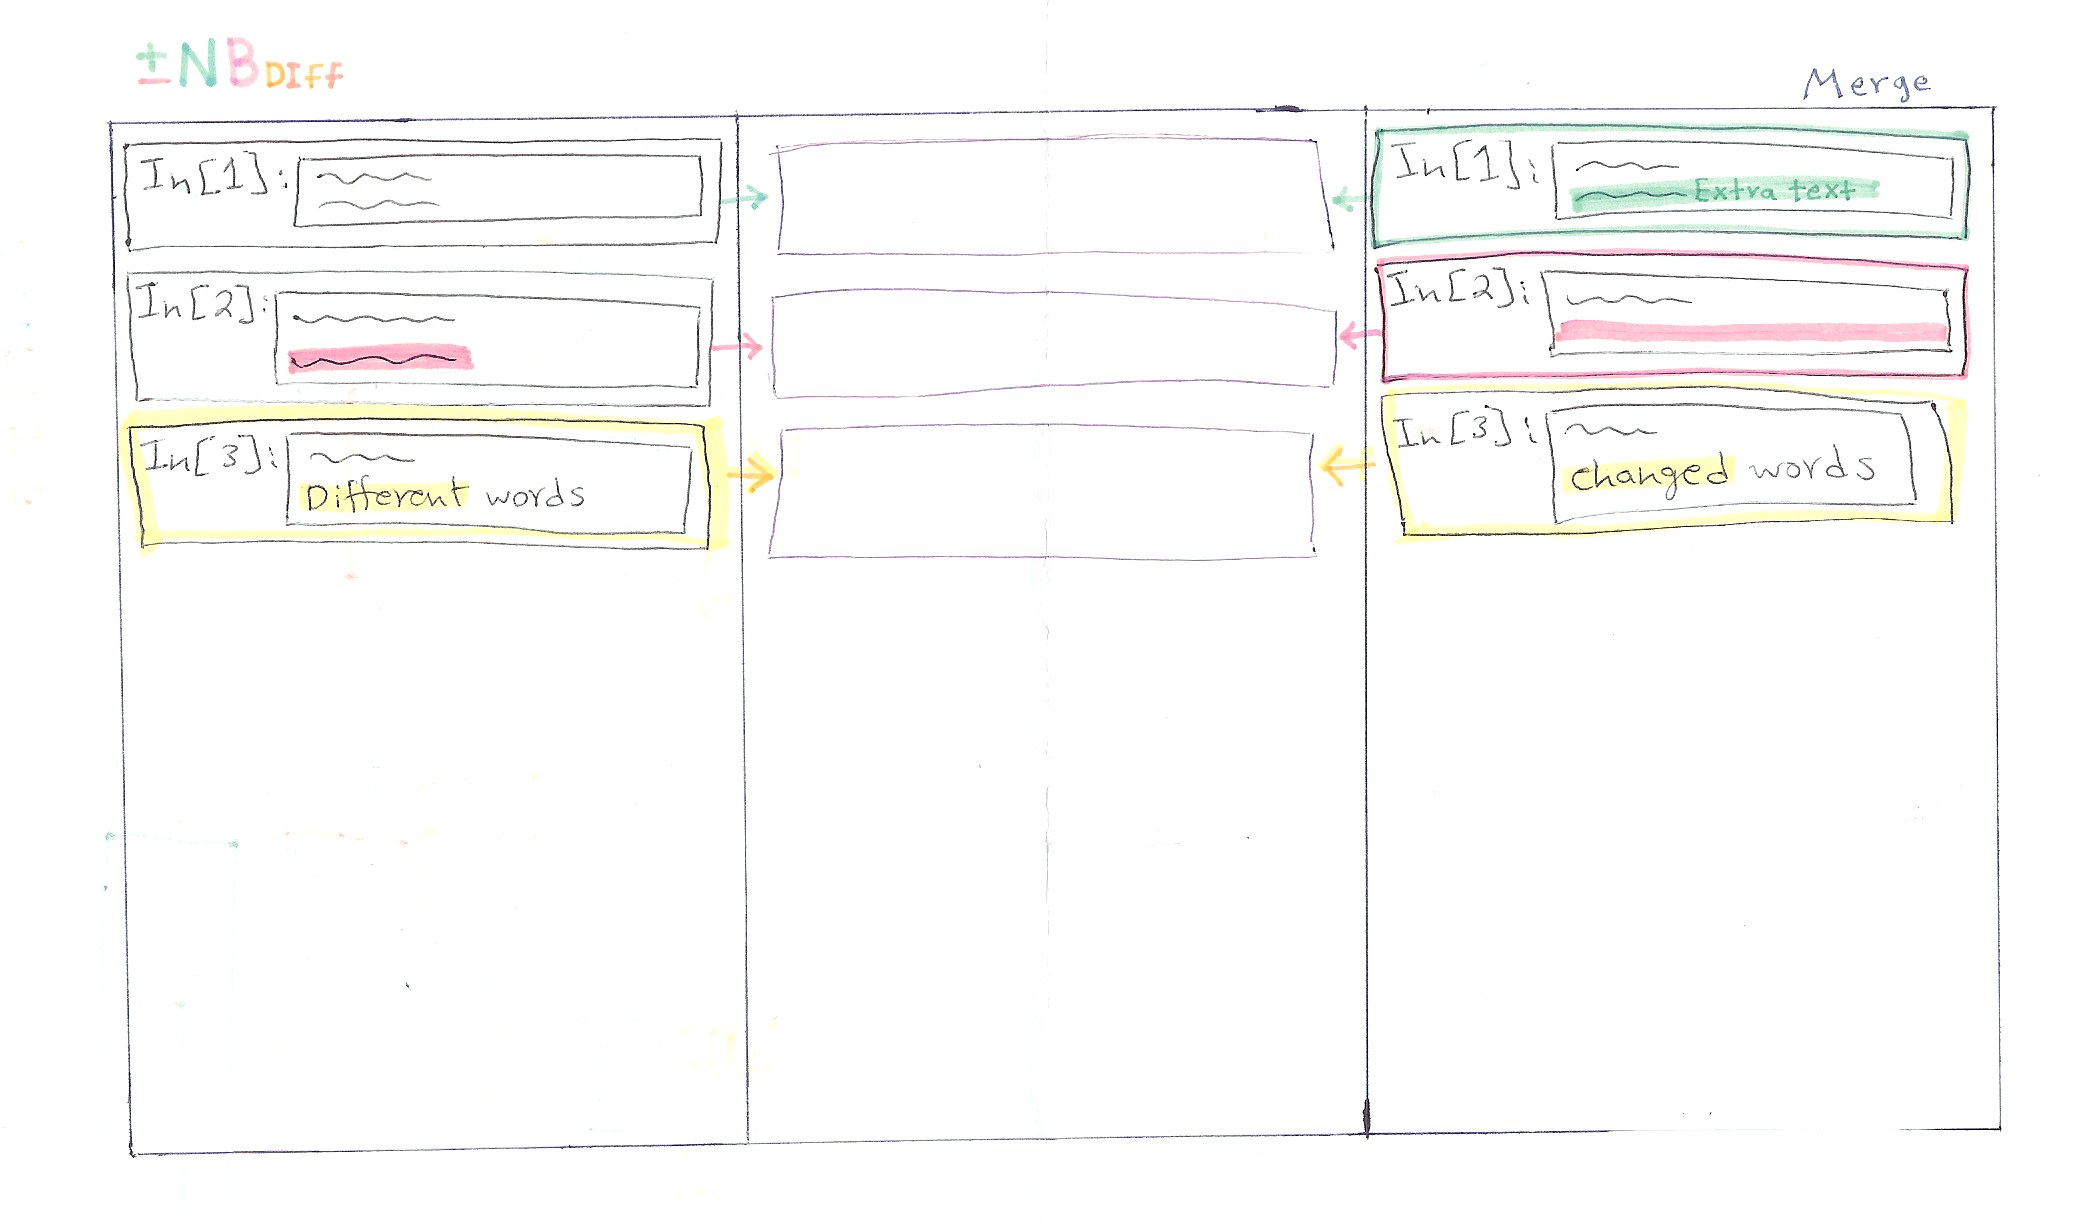 ±NBDIFF
Merge
In[1]:
In[2]:
In[3]:
Different words
In[1]:
Extra text
In[2]:
In[3]:
changed words